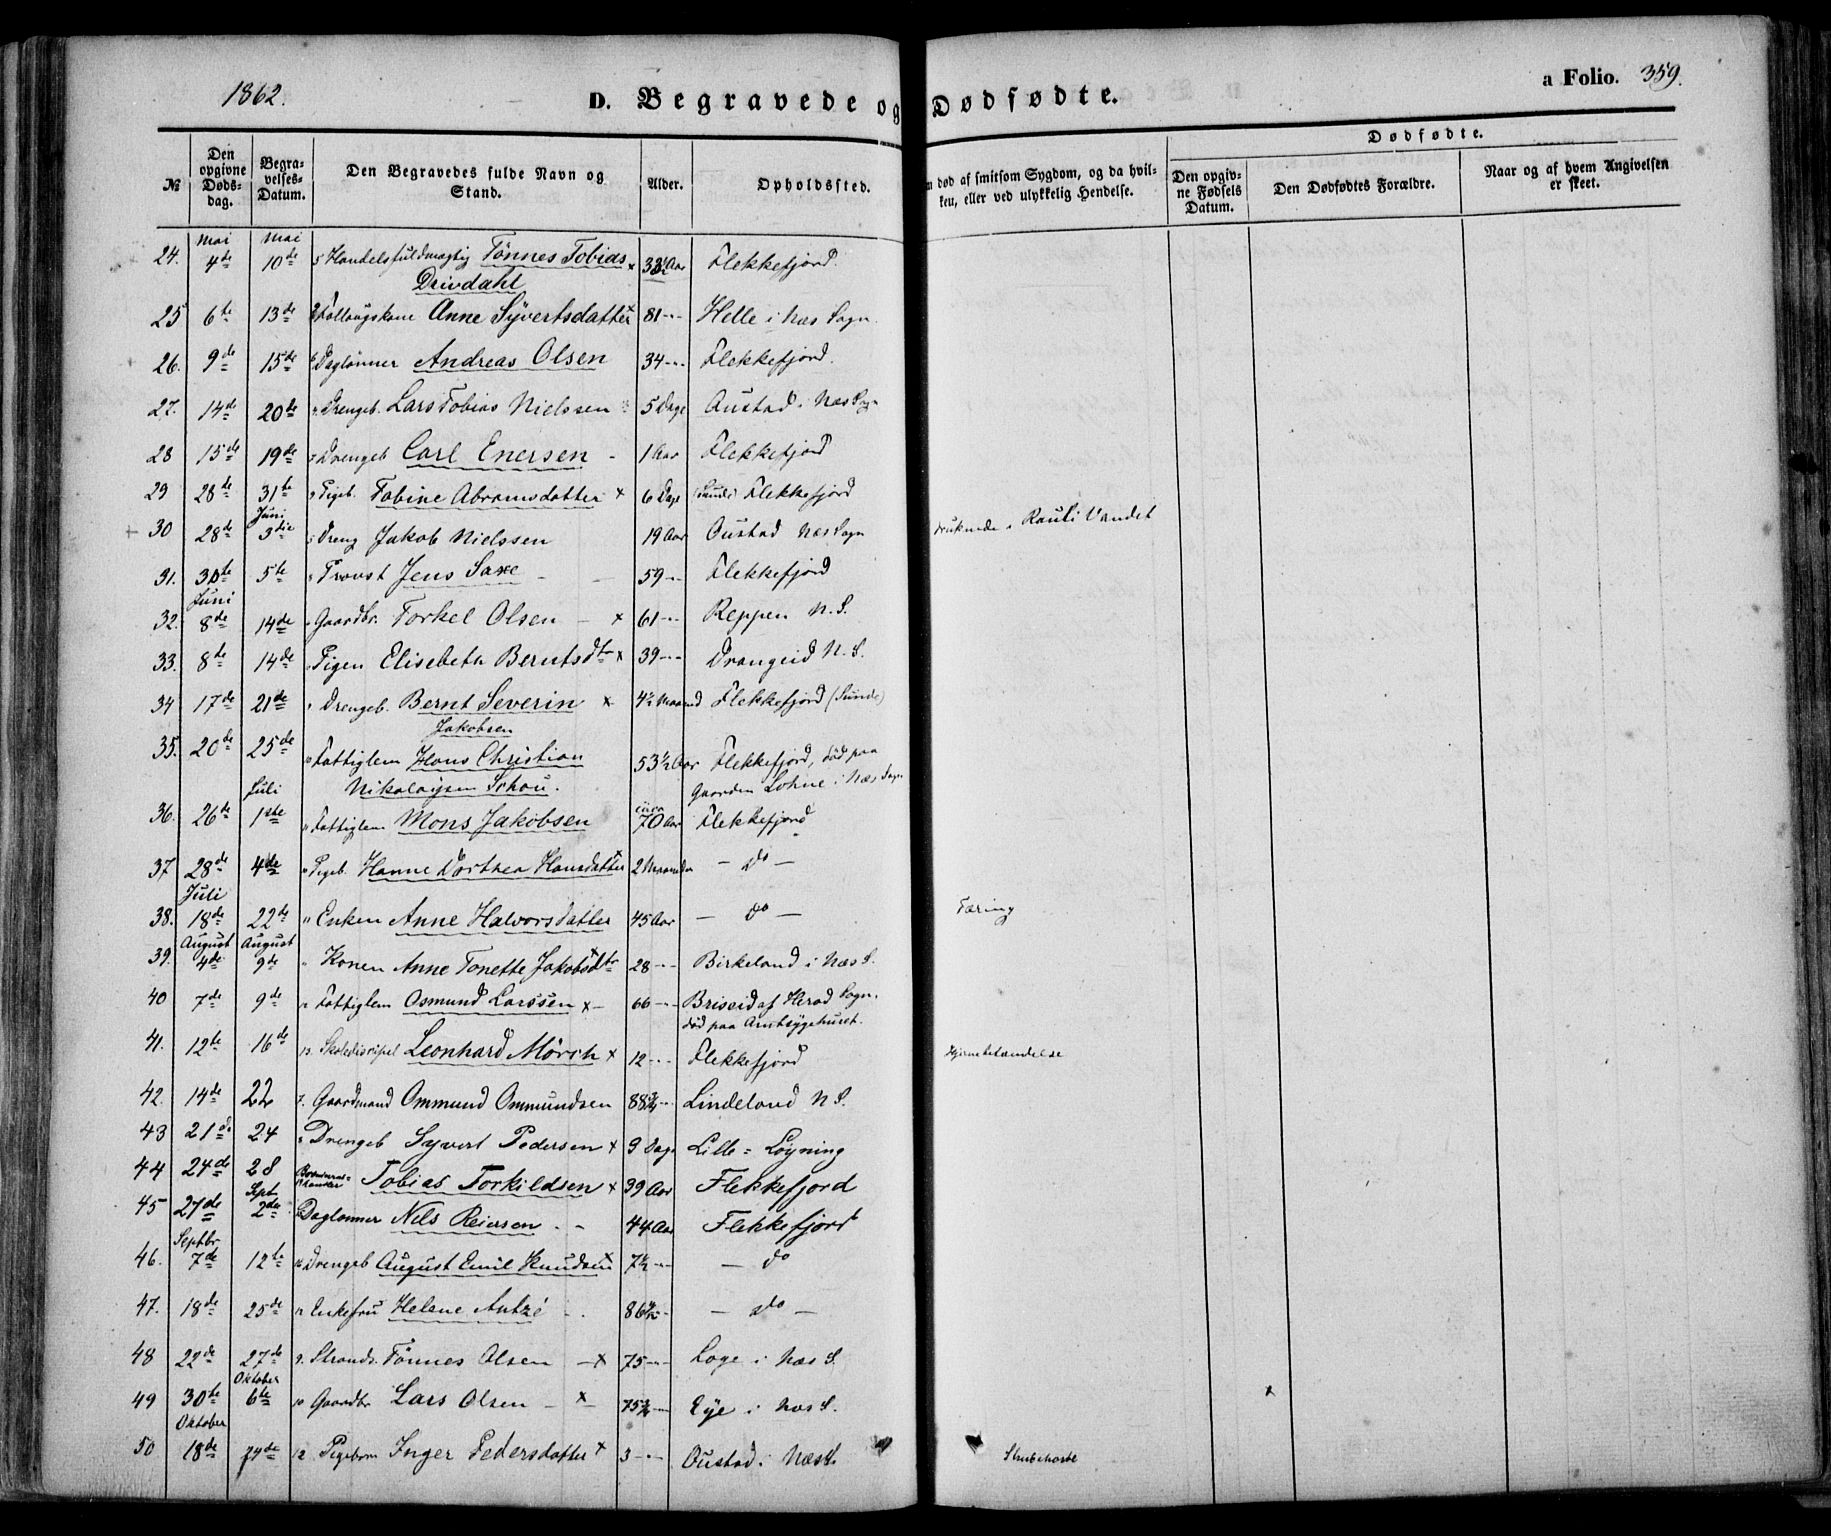 1862.
D. Begravede og Dødfødte.
a Folio. 359.
№
Den opgivne Dødsdag.
Begravelses-Datum.
Den Begravedes fulde Navn og Stand.
Alder.
Opholdssted.
død af smitsom Sygdom, og da hvilken, eller ved ulykkelig Hendelse.
Dødfødte.
Den opgivne Fødsels Datum.
Den Dødfødtes Forældre.
Naar og af hvem Angivelsen er skeet.
Mai Mai
24. 4de 10de Handelsfuldmægtig Tønnes Tobias Aar Flekkefjord.
Drivdahl
25 6te 13de Follougskone Anne Syvertsdatter 81 -"- Helle i Næs Sogn.
26. 9de 15de Daglønner Andreas Olsen 34 -"- Flekkefjord.
27. 14de 20de Drengeb. Lars Tobias Nielssen 5 Dage Oustad i Næs Sogn
28 15de 19de Drengeb Carl Enersen - 1 Aar Flekkefjord
29 28de 31te Pigeb. Tobine Abramsdatter x 6 Dage (Sunde) Flekkefjord
Juni
30 28de 3die Dreng Jakob Nielssen 19 Aar Oustad Næs Sogn druknede i Rauli Vandet
31. 30te 5te Provst Jens Saxe - 59 -"- Flekkefjord
Juni
32. 8de 14de Gaardbr. Torkel Olsen - x 61 -"- Reppen N. S.
33. 8de 14de Pigen Elisebeth Berntsdtr x 39 -"- Drangeid N. S.
34 17de 21de Drengeb. Bernt Severin x 4½ Maaned Flekkefjord (Sunde)
Jakobsen
35. 20de 25de Fattiglem Hans Christian 53½ Aar Flekkefjord, død paa
Juli Nikolaysen Schou. Gaarden Lohne i Næs Sogn
36. 26de 1ste Fattiglem Mons Jakobsen circa 70 Aar Flekkefjord
37 28de 4de Pigeb. Hanne Dorthea Hansdatter 2 Maaneder - do -
Juli
38. 18de 22de Enken Anne Halvorsdatter 45 Aar - do - Tæring
August August
39. 4de 9de Konen Anne Tonette Jakobsdtr 28 -"- Birkeland i Næs S.
40 7de 9de Fattiglem Osmund Larssen x - 66 -"- Briseid af Herad Sogn.
død paa Amtsygehuset.
41. 12te 16de 13. Skoledisipel Leonhard Mörch x 12 -"- Flekkefjord Hjernebetændelse
42. 14de 22 7. Gaardmand Ommund Ommundsen Lindeland N S.
43 21de 24 Drengeb Syvert Pedersen x 9 Dage Lille = Løyning
44 24de 28 Tobias Torkildsen x 39 Aar Flekkefjord
Sept
45 27de 2den Daglønner Nils Reiersen - - 44 Aar Flekkefjord
Septbr
46. 7de 12te Drengeb August Emil Knudsen x 7½ -"- - do
47. 18de 25de Enkefru Helene Antzé - . - do -
48 22de 27de 9. Strands. Tønnes Olsen - x 75 -"- Loge i Næs S.
Oktober
49 30te 6te 10 Gaardbr Lars Olsen - x - Eye i Næs S.
Oktober
50 18de 24de 12 Pigebarn Inger Pedersdatter x 3 -"- Oustad i Næs S. Strubehoste